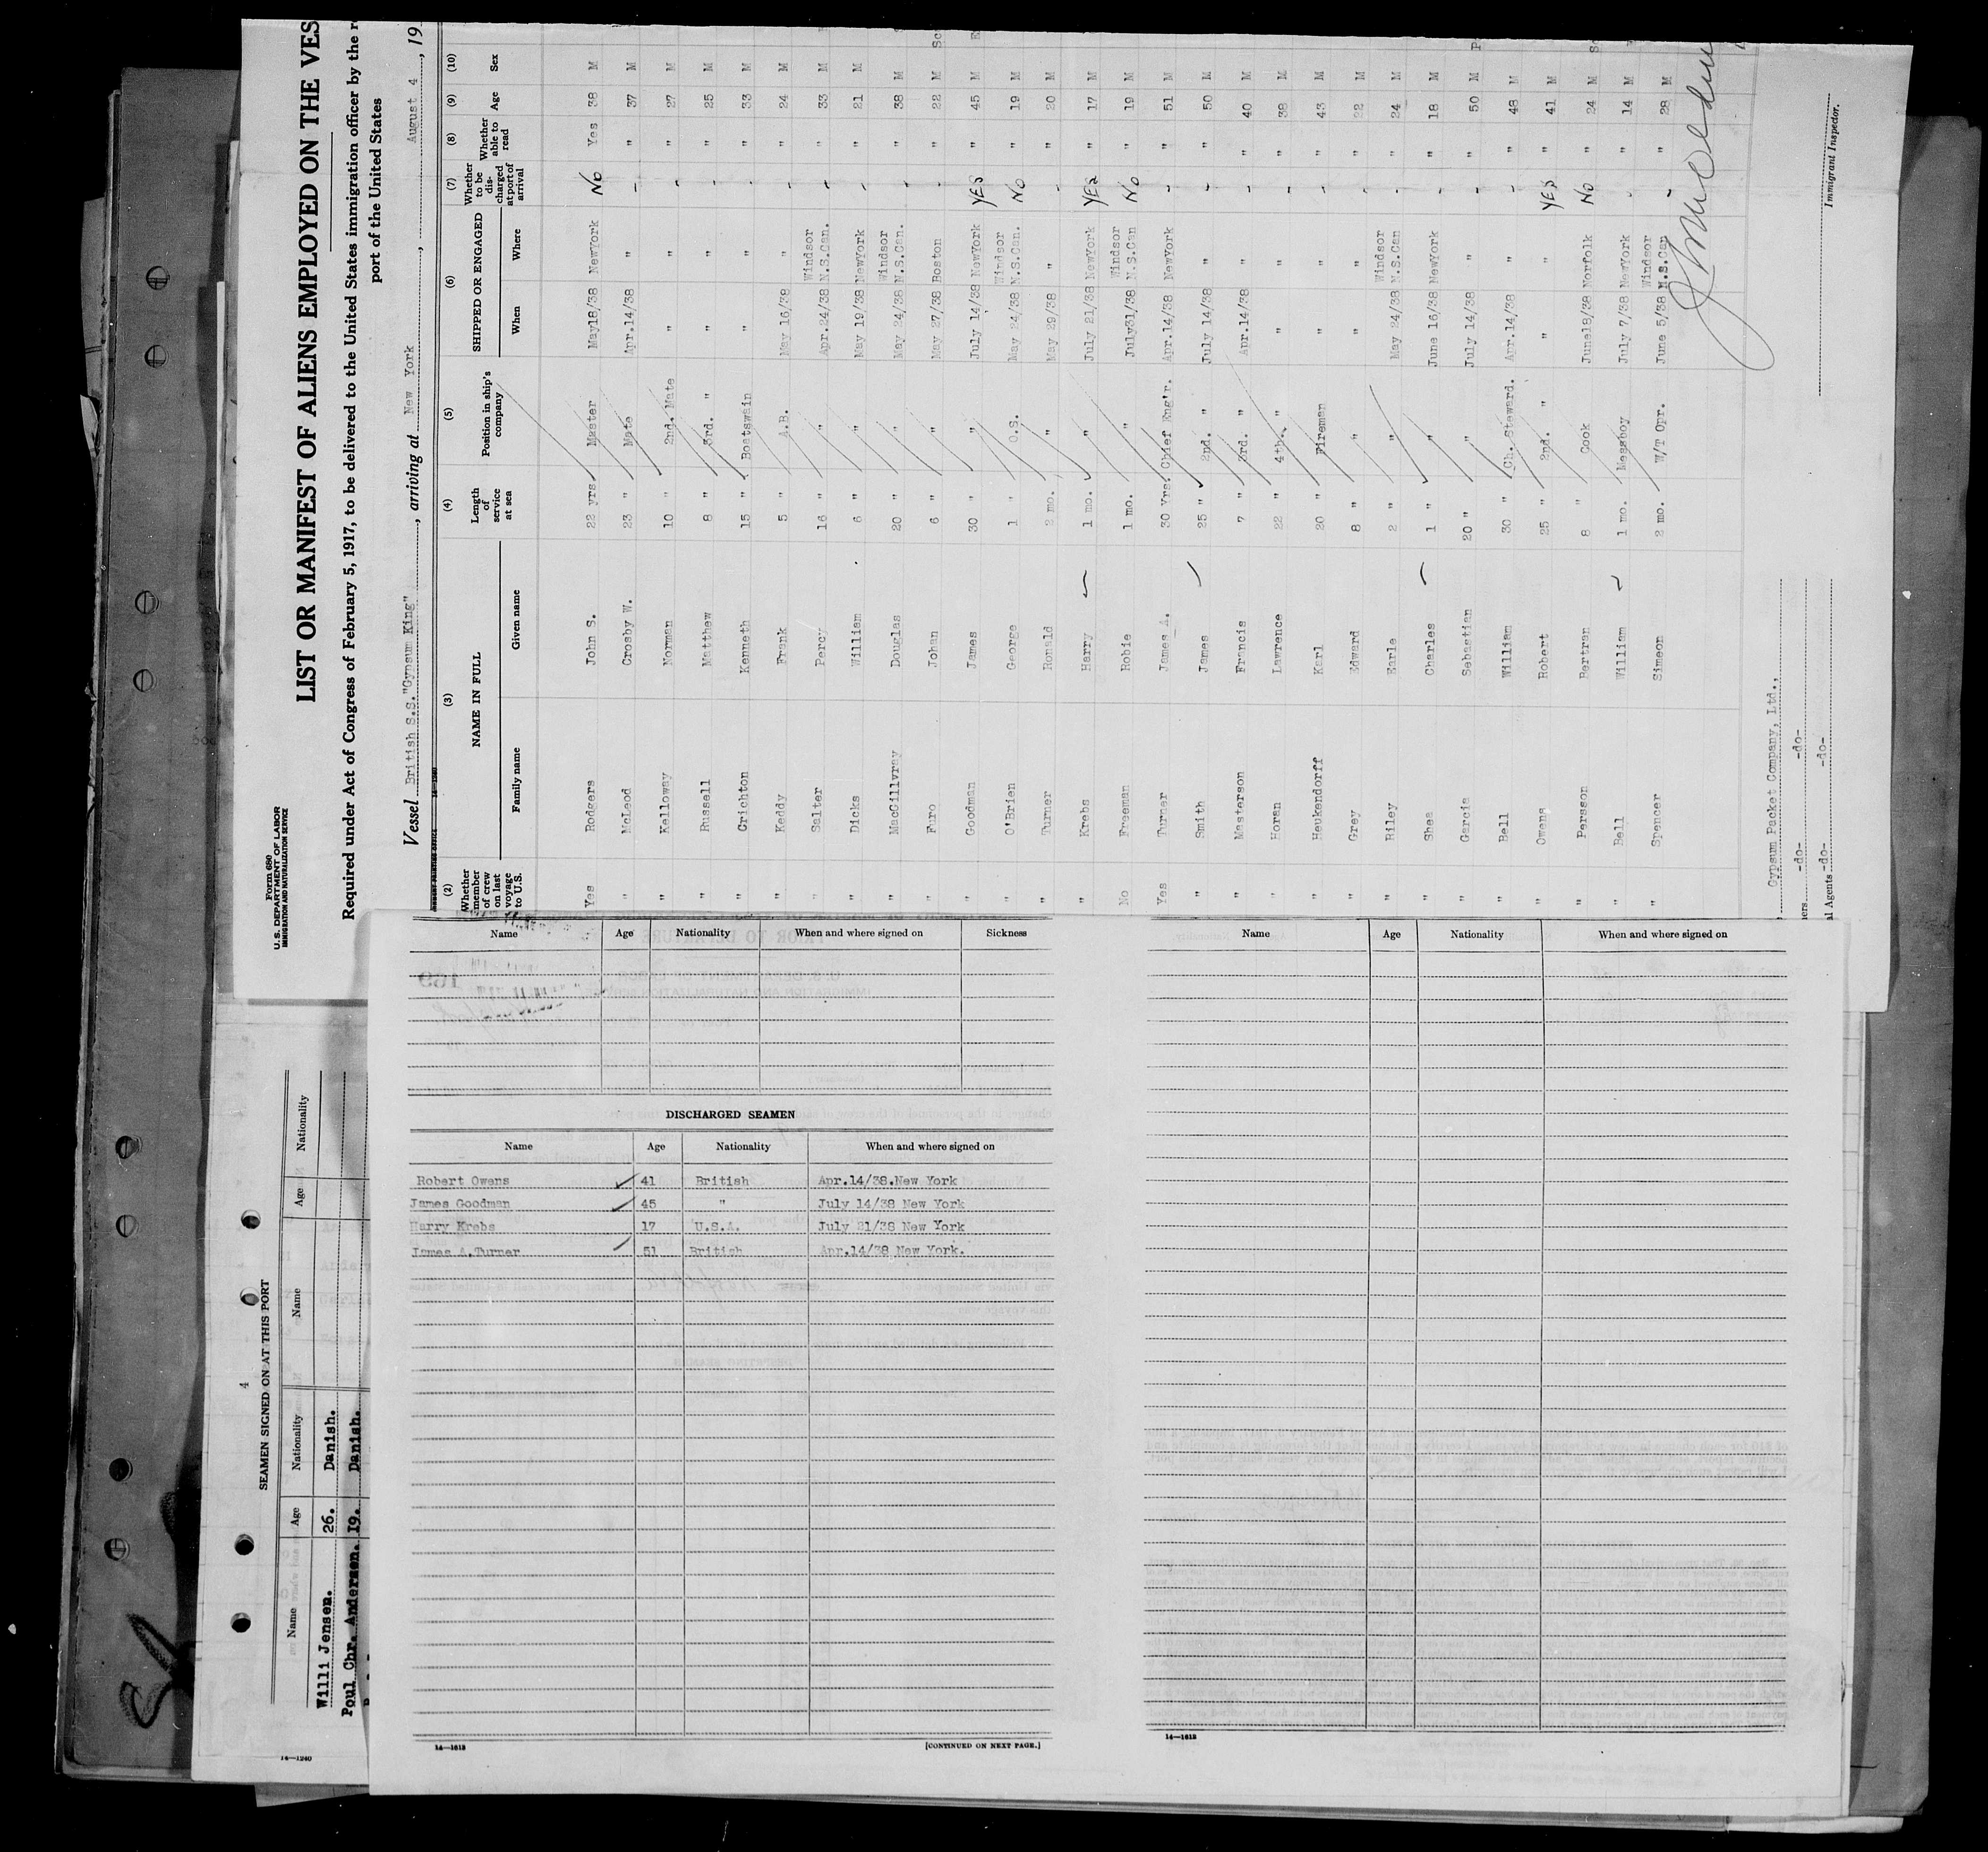 Form 680
U.S. DEPARTMENT OF LABOR
IMMIGRATION AND NATURALIZATION SERVICE
LIST OR MANIFEST OF ALIENS EMPLOYED ON THE VES
Required under Act of Congress of February 5, 1917, to be delivered to the United States immigration officer by the r
port of the United States
Vessel British S.S."Gypsum King", arriving at New York, August 4, 19
(2) (3) (4) (5) (6) (7) (8) (9) (10)
Whether member of crew on last voyage to U.S. NAME IN FULL Family name Given name Length of service at sea Position in ship's company SHIPPED OR ENGAGED When Where Whether to be dis-charged at port of arrival Whether able to read Age Sex
Yes Rodgers John S. 22 yrs Master May18/38 NewYork No Yes 38 M
" McLeod Crosby W. 23 " Mate Apr.14/38 " - " 37 M
" Kelloway Norman 10 " 2nd. Mate " " - " 27 M
" Russell Matthew 8 " 3rd. " " " - " 25 M
" Crichton Kenneth 15 " Boatswain " " - " 33 M
" Keddy Frank 5 " A.B. May 16/38 " - " 24 M
" Salter Percy 16 " " Apr.24/38 Windsor N.S.Can. - " 33 M
" Dicks William 6 " " May 19/38 NewYork - " 21 M
" MacGillvray Douglas 20 " " May 24/38 Windsor N.S.Can. - " 38 M
" Furo Johan 6 " " May 27/38 Boston - " 22 M Sc
" Goodman James 30 " " July 14/38 NewYork YES " 45 M E
" O'Brien George 1 " O.S. May 24/38 Windsor N.S.Can. No " 19 M
" Turner Ronald 2 mo. " May 29/38 " - " 20 M
" Krebs Harry 1 mo. " July 21/38 NewYork YES " 17 M
No Freeman Robie 1 mo. " July31/38 Windsor N.S.Can No " 19 M
Yes Turner James A. 30 Yrs. Chief Eng'r. Apr.14/38 NewYork - " 51 M
" Smith James 25 " 2nd. " July 14/38 " - " 50 M
" Masterson Francis 7 " 3rd. " Apr.14/38 " - " 40 M
" Horan Lawrence 22 " 4th. " " " - " 38 M
" Heukendorff Karl 20 " Fireman " " - " 43 M
" Grey Edward 8 " " " " - " 22 M
" Riley Earle 2 " " May 24/38 Windsor N.S.Can - " 24 M
" Shea Charles 1 " " June 16/38 NewYork - " 18 M
" Garcia Sebastian 20 " " July 14/38 " - " 50 M
" Bell William 30 " Ch. Steward. Apr.14/38 " - " 48 M
" Owens Robert 25 " 2nd. " " " YES " 41 M
" Person Bertran 8 " Cook June18/38 Norfolk No " 24 M Sc
" Bell William 1 mo. Messboy July 7/38 NewYork - " 14 M
" Spencer Simeon 2 mo. W/T Opr. June 5/38 Windsor N.S.Can - " 28 M
Gypsum Packet Company, Ltd.,
ers -do- -do-
al Agents -do- -do-
Immigrant Inspector.
Name Age Nationality When and where signed on Sickness
DISCHARGED SEAMEN
Name Age Nationality When and where signed on
Robert Owens 41 British Apr.14/38.New York
James Goodman 45 " July 14/38 New York
Harry Krebs 17 U.S.A. July 21/38 New York
James A.Turner 51 British Apr.14/38 New York.
14—1613
[CONTINUED ON NEXT PAGE.]
Name Age Nationality When and where signed on
14—1613
4
SEAMEN SIGNED ON AT THIS PORT
Name Age Nationality Name Age Nationality
Willi Jensen. 26. Danish.
Poul Chr. Andersen. 19. Danish.
14—1240